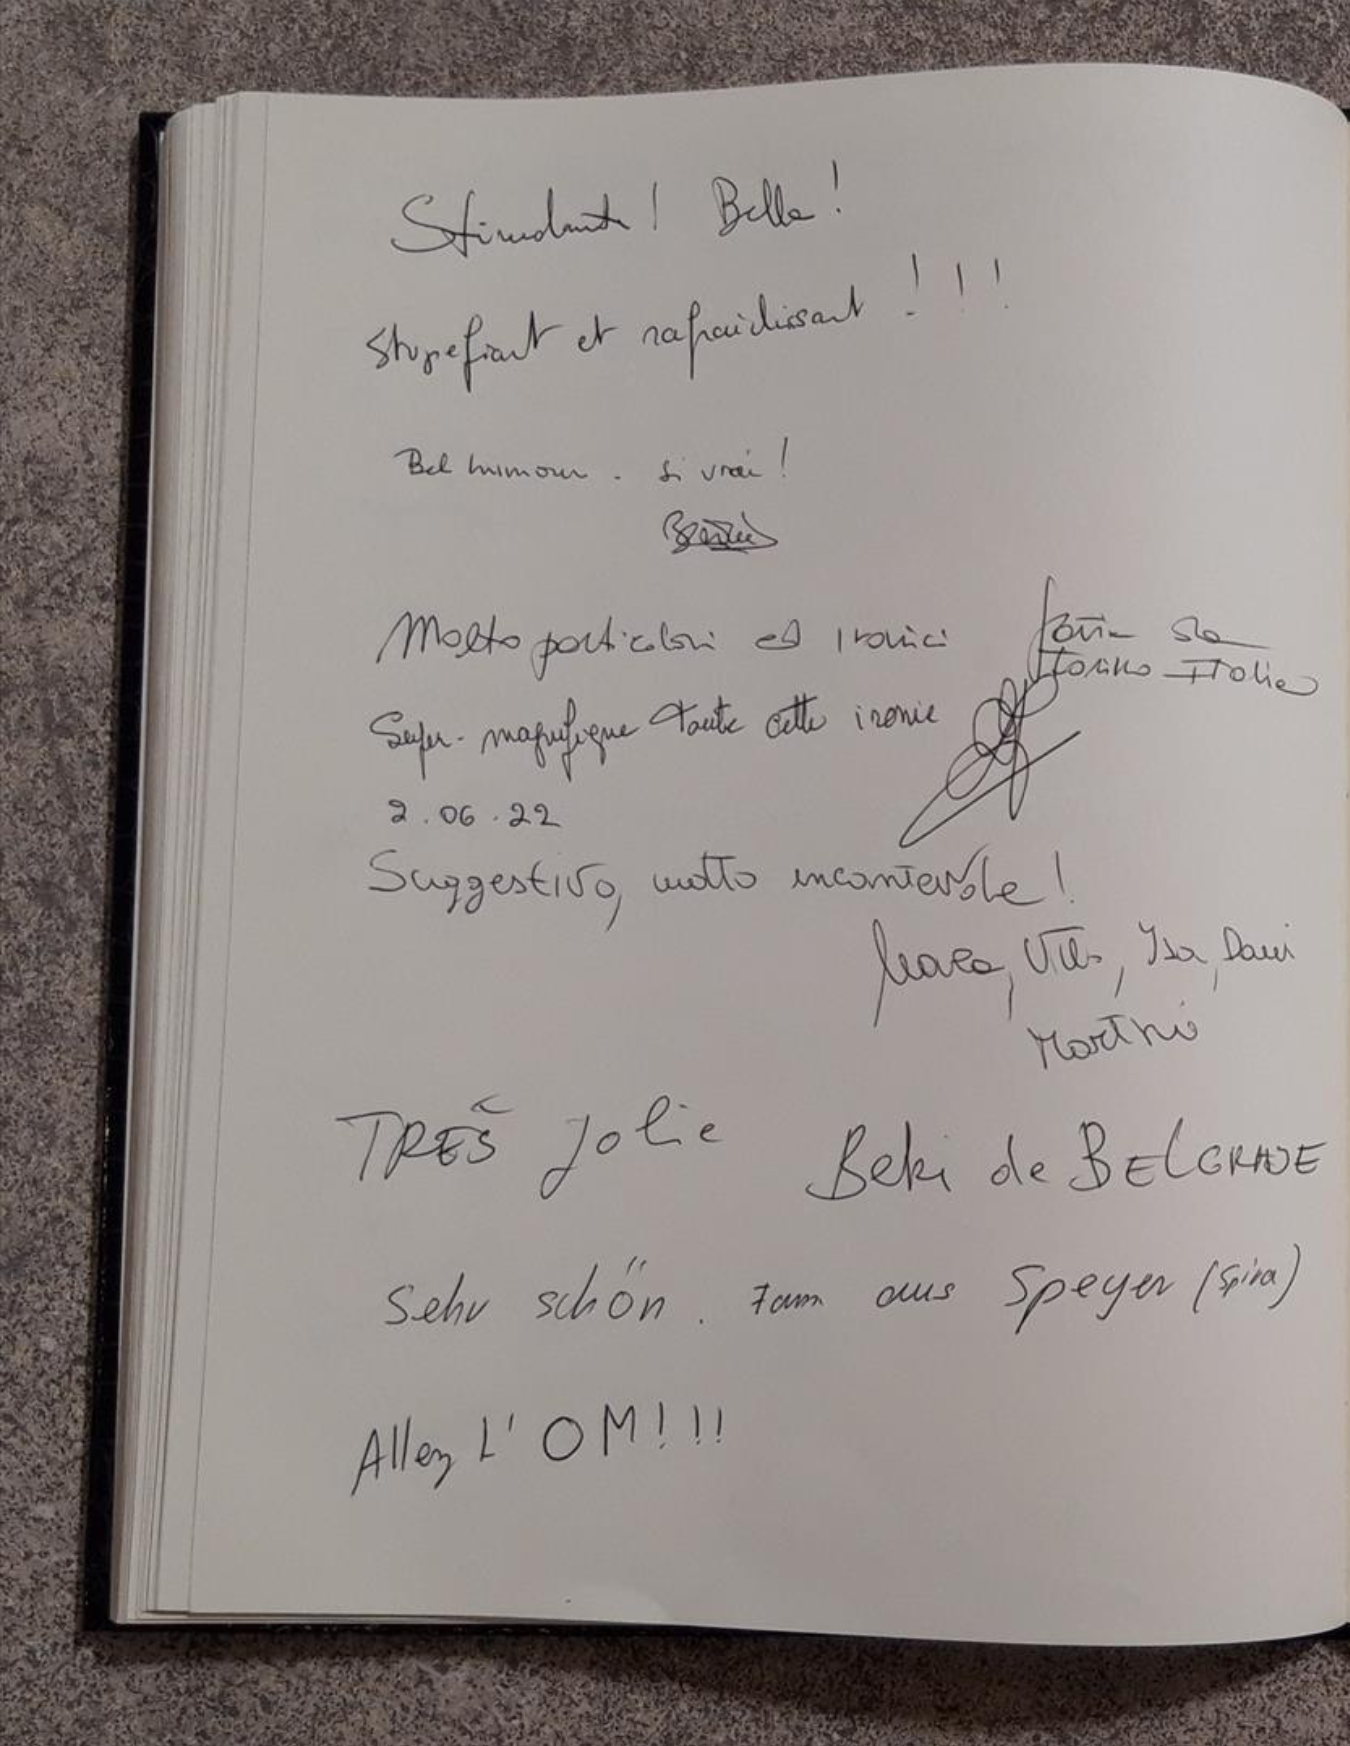 Bella!
Stupefiant et rafraichissant !!!
Bel humour. si vrai!
Molto particolari ed Ironici
Torino Italia
Super. magnifique toute cette ironie
2.06.22
Suggestivo, molto incantevole!
Mara, Vito, Isa, Dani
TRES Jolie
Beki de BELGRADE
Sehr schön. Fam aus Speyer (Spira)
Allez L'OM!!!